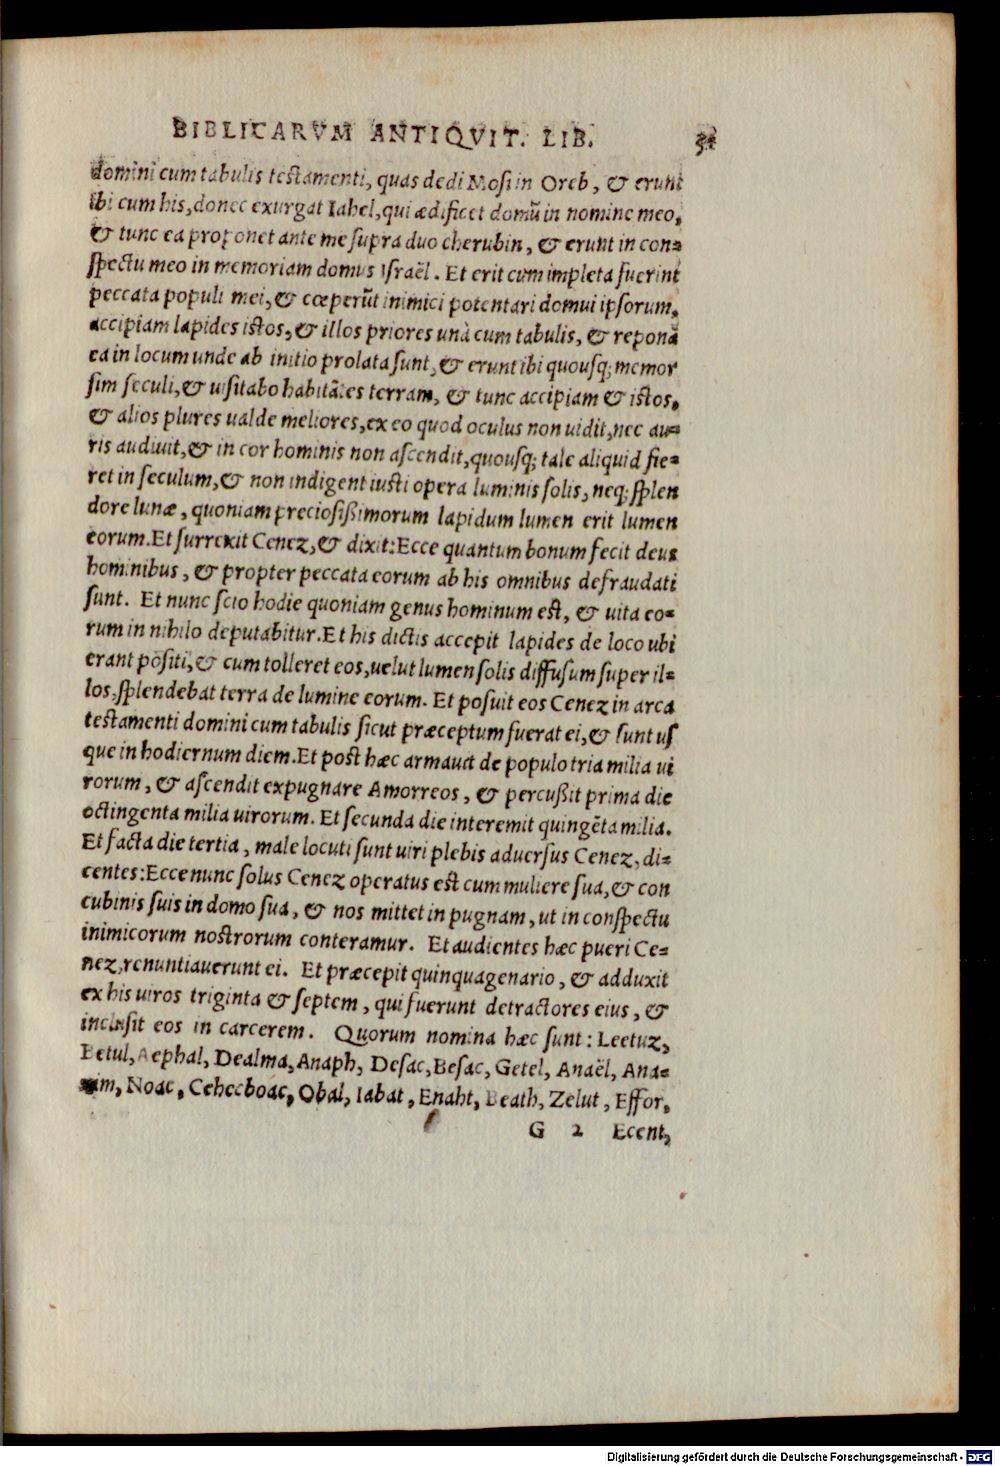 BIBLICARVM ANTIQVIT. LIB.
domini cum tabulis testamenti, quas dedi Mosi in Oreb, & erunt
ibi cum his, donec exurgat Iahel, qui ædificet domū in nomine meo,
& tunc ea proponet ante me supra duo cherubin, & erunt in con=
spectu meo in memoriam domus Israël. Et erit cum impleta fuerint
peccata populi mei, & cœperūt inimici potentari domui ipsorum,
accipiam lapides istos, & illos priores unà cum tabulis, & reponā
ea in locum unde ab initio prolata sunt, & erunt ibi quousq; memor
sim seculi, & uisitabo habitātes terram, & tunc accipiam & istos,
& alios plures ualde meliores, ex eo quod oculus non uidit, nec au=
ris audiuit, & in cor hominis non ascendit, quousq; tale aliquid fie=
ret in seculum, & non indigent iusti opera luminis solis, neq; splen
dore lunæ, quoniam preciosißimorum lapidum lumen erit lumen
eorum. Et surrexit Cenez, & dixit: Ecce quantum bonum fecit deus
hominibus, & propter peccata eorum ab his omnibus defraudati
sunt. Et nunc scio hodie quoniam genus hominum est, & uita eo=
rum in nihilo deputabitur. Et his dictis accepit lapides de loco ubi
erant positi, & cum tolleret eos, uelut lumen solis diffusum super il=
los, splendebat terra de lumine eorum. Et posuit eos Cenez in arca
testamenti domini cum tabulis sicut præceptum fuerat ei, & sunt us
que in hodiernum diem. Et post hæc armauit de populo tria milia ui
rorum, & ascendit expugnare Amorreos, & percußit prima die
octingenta milia uirorum. Et secunda die interemit quingēta milia.
Et facta die tertia, male locuti sunt uiri plebis aduersus Cenez, di=
centes: Ecce nunc solus Cenez operatus est cum muliere sua, & con
cubinis suis in domo sua, & nos mittet in pugnam, ut in conspectu
inimicorum nostrorum conteramur. Et audientes hæc pueri Ce=
nez, renuntiauerunt ei. Et præcepit quinquagenario, & adduxit
ex his uiros triginta & septem, qui fuerunt detractores eius, &
inclusit eos in carcerem. Quorum nomina hæc sunt: Leetuz,
Betul, Aephal, Dealma, Anaph, Desac, Besac, Getel, Anaël, Ana=
im, Noac, Cehecboac, Obal, Iabat, Enaht, Beath, Zelut, Effor,
G 2 Ecent,
Digitalisierung gefördert durch die Deutsche Forschungsgemeinschaft - DFG